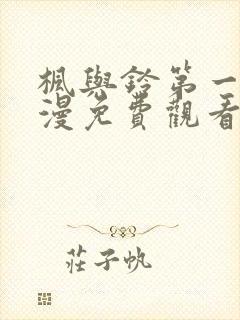 楓與鈴第一
漫免費觀看
莊子帆